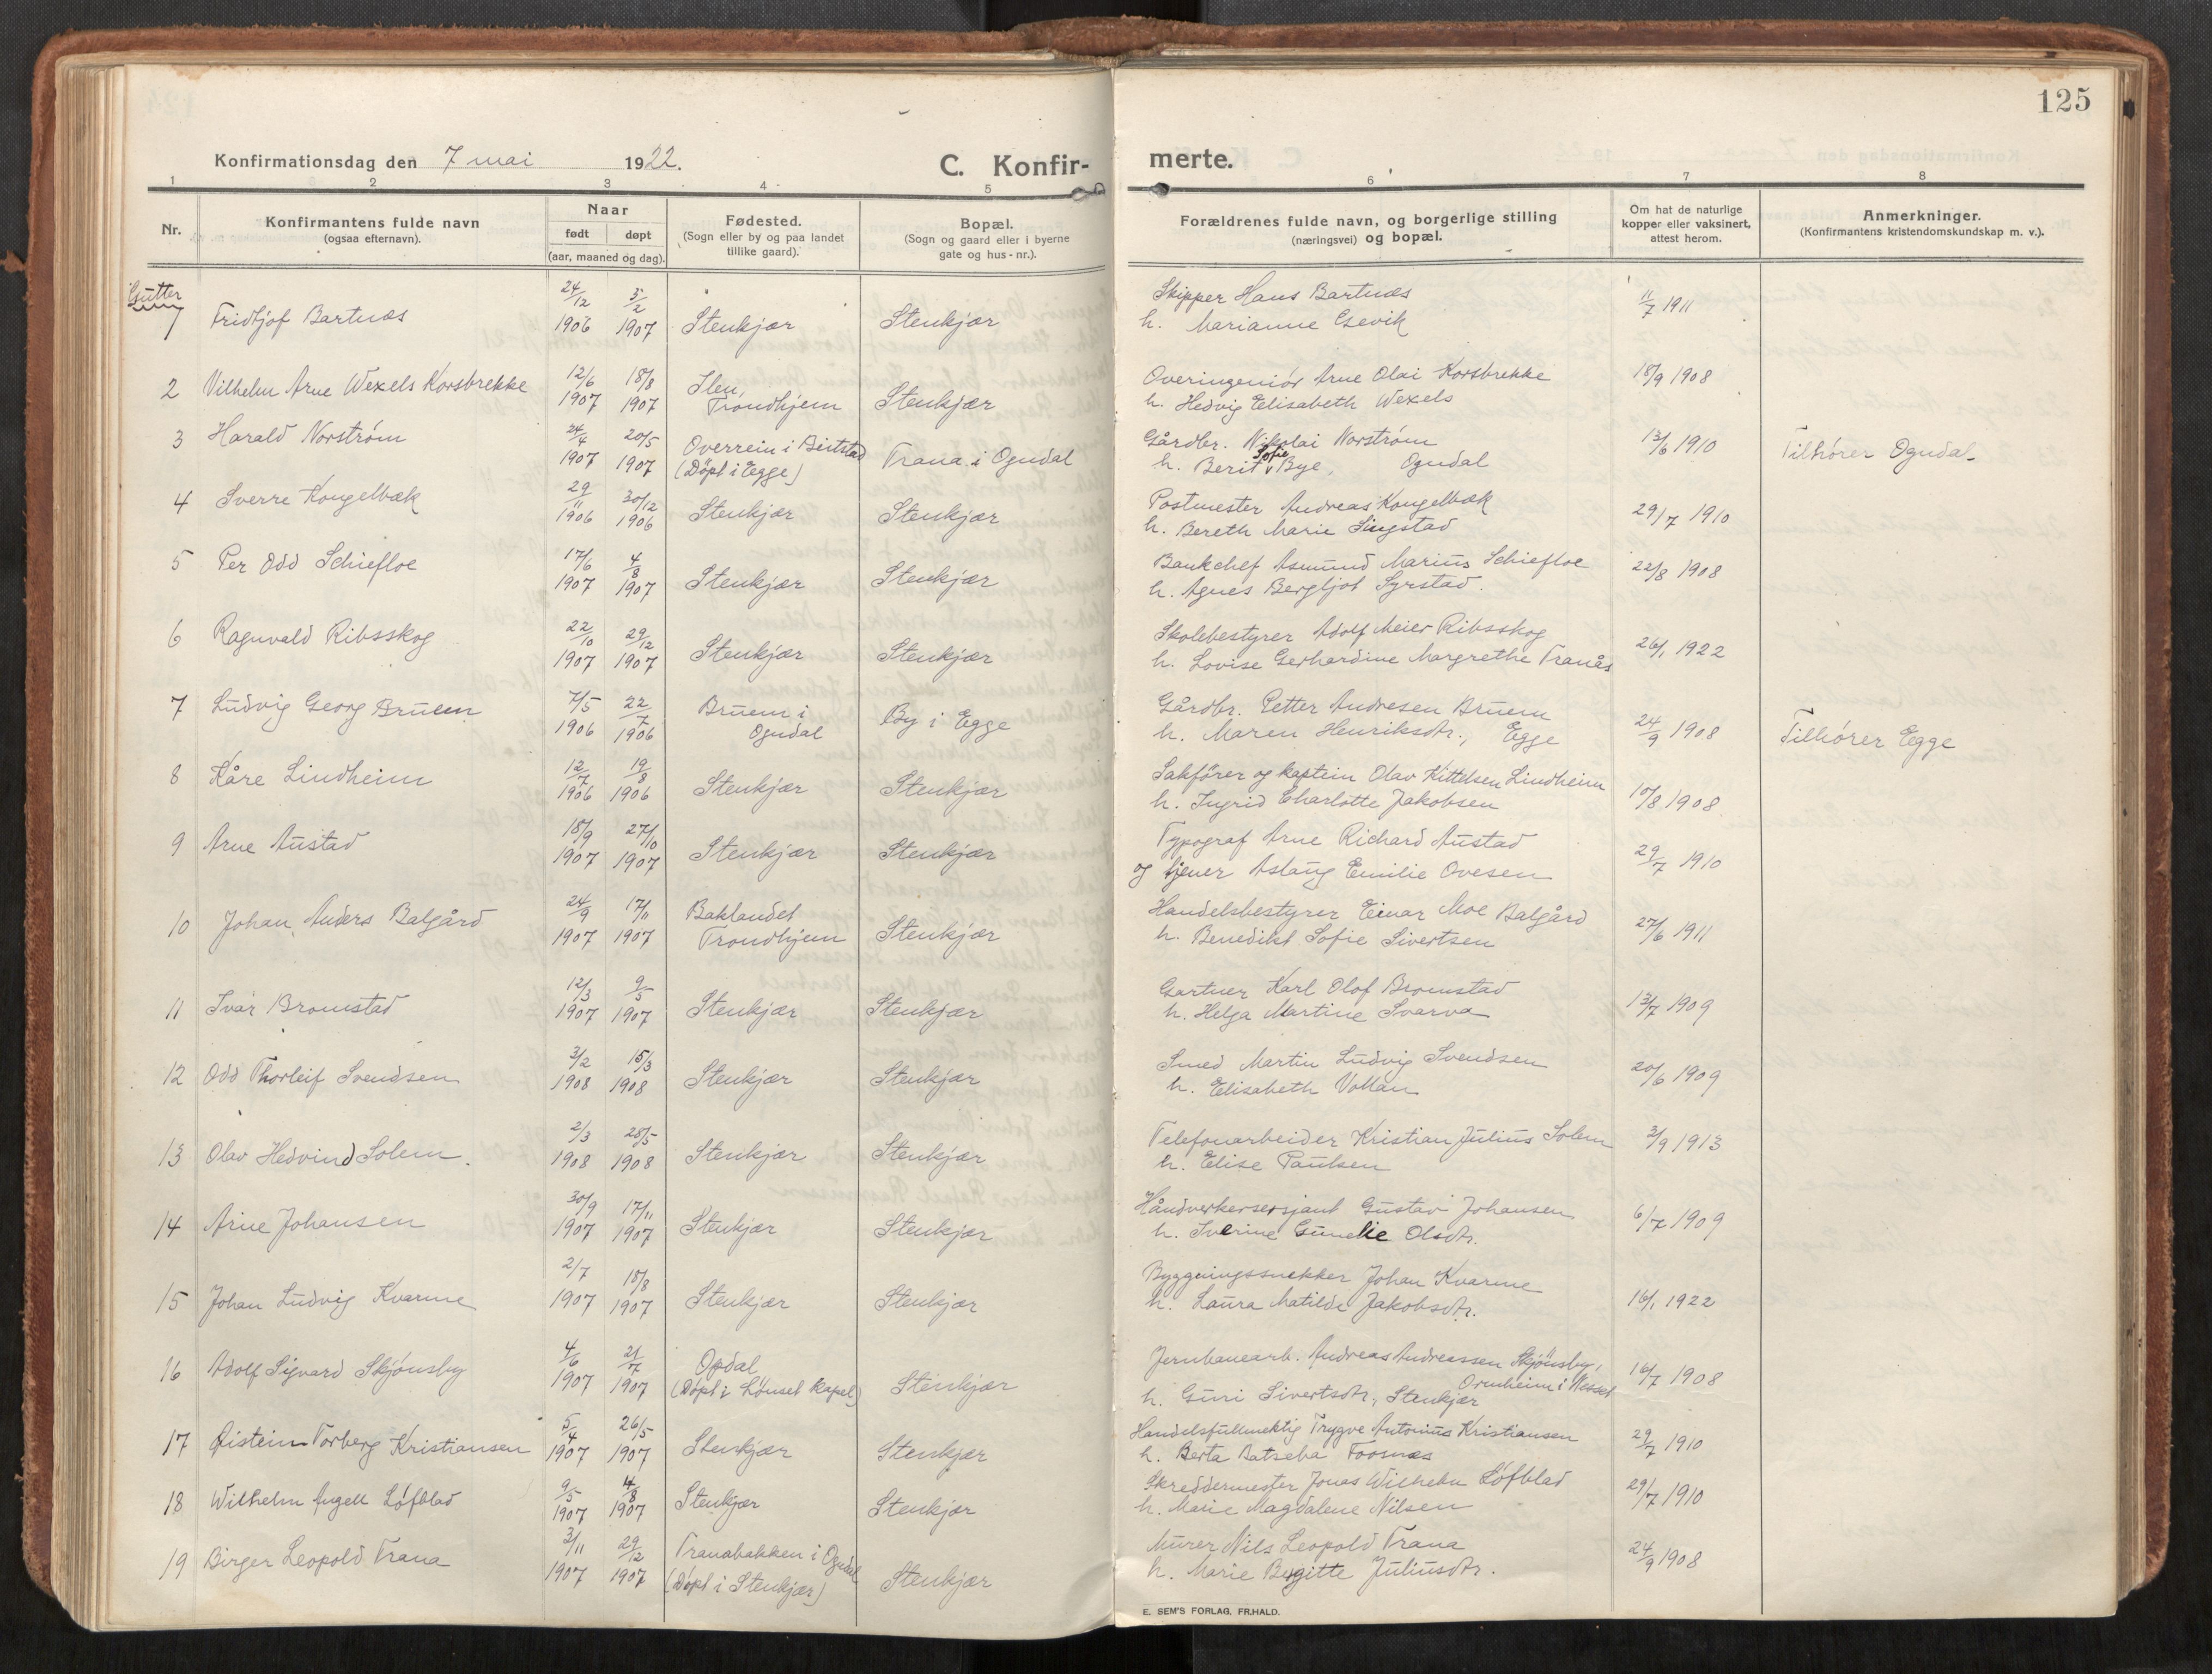 125
Konfirmationsdag den 7 mai 1922.
C. Konfir-
merte.
1 2 3 4 5 6 7 8
Nr.
Konfirmantens fulde navn
(ogsaa efternavn).
Naar
født døpt
(aar, maaned og dag).
Fødested.
(Sogn eller by og paa landet
tillike gaard).
Bopæl.
(Sogn og gaard eller i byerne
gate og hus-nr.).
Forældrenes fulde navn, og borgerlige stilling
(næringsvei) og bopæl.
Om hat de naturlige
kopper eller vaksinert,
attest herom.
Anmerkninger.
(Konfirmantens kristendomskundskap m. v.).
Gutter
1 Fridtjof Bartnæs 24/12 1906 5/2 1907 Stenkjær Stenkjær
Skipper Hans Bartnæs 11/7 1911
h. Marianne
2 Vilhelm Arne Wexels Korsbrekke 12/6 1907 18/8 1907 Ilen, Trondhjem Stenkjær
Overingeniør Arne Olai Korsbrekke 18/9 1908
h. Hedvig Elisabeth Wexels
3 Harald Norstrøm 24/4 1907 20/5 1907 Overrein i Beitstad (Døpt i Egge) Trana i Ogndal
Gårdbr. Nikolai Norstrøm 13/6 1910 Tilhører Ogndal
h. Berit Sofie Bye, Ogndal
4 Sverre Kongelbæk 29/11 1906 30/12 1906 Stenkjær Stenkjær
Postmester Andreas Kongelbæk 29/7 1910
h. Bereth Marie Singstad
5 Per Odd Schiefloe 17/6 1907 4/8 1907 Stenkjær Stenkjær
Bankchef Asmund Marius Schiefloe 22/8 1908
h. Agnes Bergljot Syrstad.
6 Ragnvald Ribsskog 22/10 1907 29/12 1907 Stenkjær Stenkjær
Skolebestyrer Adolf Meier Ribsskog 26/1 1922
h. Lovise Gerhardine Margrethe Tranås
7 Ludvig Georg Bruem 7/5 1906 22/7 1906 Bruem i Ogndal By i Egge
Gårdbr. Petter Andresen Bruem 24/9 1908 Tilhører Egge
h. Maren Henriksdtr., Egge
8 Kåre Lindheim 12/7 1906 19/8 1906 Stenkjær Stenkjær
Sakfører og kaptein Olav Kittelsen Lindheim 10/8 1908
h. Ingrid Charlotte Jakobsen
9 Arne Austad 18/9 1907 27/10 1907 Stenkjær Stenkjær
Typograf Arne Richard Austad 29/7 1910
og tjener Aslaug Emilie Ovesen
10 Johan Anders Balgård 24/9 1907 17/11 1907 Baklandet Trondhjem Stenkjær
Handelsbestyrer Einar Moe Balgård 27/6 1911
h. Benedikt Sofie Sivertsen
11 Ivar Bromstad 12/3 1907 9/5 1907 Stenkjær Stenkjær
Gartner Karl Olof Bromstad 13/7 1909
h. Helga Martine Svarva
12 Odd Thorleif Svendsen 3/2 1908 15/3 1908 Stenkjær Stenkjær
Smed Martin Ludvig Svendsen 20/6 1909
h. Elisabeth Vollan
13 Olav Hedvind Solem. 2/3 1908 28/5 1908 Stenkjær Stenkjær
Telefonarbeider Kristian Julius Solem 2/9 1913
h. Elise Paulsen
14 Arne Johansen 30/9 1907 17/11 1907 Stenkjær Stenkjær
Håndverkersersjant Gustav Johansen 6/7 1909
h. Iverine Gunelie Olsdtr.
15 Johan Ludvig Kvarme 2/7 1907 18/8 1907 Stenkjær Stenkjær
Bygningssnekker Johan Kvarme 16/1 1922
h. Laura Matilde Jakobsdtr.
16 Adolf Sigvard Skjønsby 4/6 1907 21/7 1907 Opdal (Døpt i Lønset kapel) Stenkjær
Jernbanearb. Andreas Andreassen Skjønsby, 16/7 1908
Ormheim i
h. Guri Sivertsdtr., Stenkjær
17 Øistein Torberg Kristiansen 5/4 1907 26/5 1907 Stenkjær Stenkjær
Handelsfullmektig Trygve Antonius Kristiansen 29/7 1910
h. Berta Batseba Foosnæs
18 Wilhelm Angell Løfblad 9/5 1907 4/8 1907 Stenkjær Stenkjær
Skreddermester Jonas Wilhelm Løfblad 29/7 1910
h. Marie Magdalene Nilsen
19 Birger Leopold Trana 3/11 1907 29/12 1907 Tranabakken i Ogndal (Døpt i Stenkjær) Stenkjær
Murer Nils Leopold Trana 24/9 1908
h. Marie Birgitte Juliusdtr.
E. SEM'S FORLAG. FR.HALD.